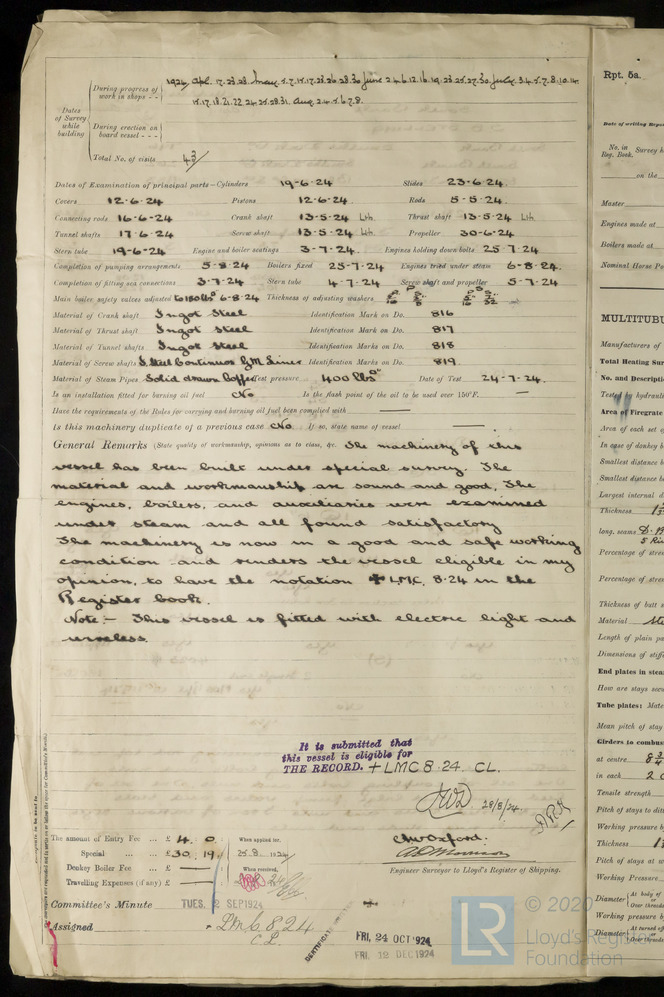 During progress of work in shops - -
1924 Apl. 17.23.28. May 5.7.15.17.23.26.28.30 June 2.4.6.12.16.19.23.25.27.30 July 3.4.5.7.8.10.14
15.17.18.21.22.24.25.28.31. Aug 2.4.5.6.7.8.
Dates of Survey while building
During erection on board vessel - - -
Total No. of visits 43
Dates of Examination of principal parts—Cylinders 19-6-24 Slides 23-6-24
Covers 12-6-24 Pistons 12-6-24 Rods 5-5-24
Connecting rods 16-6-24 Crank shaft 13-5-24 Lth. Thrust shaft 13-5-24 Lth.
Tunnel shafts 17-6-24 Screw shaft 13-5-24 Lth. Propeller 30-6-24
Stern tube 19-6-24 Engine and boiler seatings 3-7-24. Engines holding down bolts 25.7.24
Completion of pumping arrangements 5-8-24 Boilers fixed 25-7-24 Engines tried under steam 6-8-24.
Completion of fitting sea connections 3-7-24 Stern tube 4-7-24 Screw shaft and propeller 5-7-24
Main boiler safety valves adjusted 6-8-24 Thickness of adjusting washers
Material of Crank shaft Ingot Steel Identification Mark on Do. 816
Material of Thrust shaft Ingot Steel Identification Mark on Do. 817
Material of Tunnel shafts Ingot Steel Identification Marks on Do. 818
Material of Screw shafts I. Steel Continuous G.M. Liner Identification Marks on Do. 819.
Material of Steam Pipes Solid drawn Copper Test pressure 400 lbs□" Date of Test 24-7-24.
Is an installation fitted for burning oil fuel No Is the flash point of the oil to be used over 150°F. —
Have the requirements of the Rules for carrying and burning oil fuel been complied with —
Is this machinery duplicate of a previous case No. If so, state name of vessel —
General Remarks (State quality of workmanship, opinions as to class, &c. The machinery of this
vessel has been built under special survey. The
material and workmanship are sound and good. The
engines, boilers, and auxiliaries were examined
under steam and all found satisfactory
The machinery is now in a good and safe working
condition and renders the vessel eligible in my
opinion, to have the notation ✠ LMC. 8.24 in the
Register book.
Note:- This vessel is fitted with electric light and
wireless.
It is submitted that
this vessel is eligible for
THE RECORD. + LMC 8.24. CL.
28/8/24.
The amount of Entry Fee ... £ 4. 0 When applied for,
Special ... ... £ 30. 19.
Donkey Boiler Fee ... £ — When received,
Travelling Expenses (if any) £ —
Engineer Surveyor to Lloyd's Register of Shipping.
Committee's Minute TUES. 2 SEP 1924
Assigned + LMC 8 24
CL
FRI. 24 OCT 1924
FRI. 12 DEC 1924
Rpt. 5a.
Date of writing Report
No. in Reg. Book. Survey h
on the
Master
Engines made at
Boilers made at
Nominal Horse Po
MULTITUBU
Manufacturers of
Total Heating Sur
No. and Descripti
Tested by hydrauli
Area of Firegrate
Area of each set o
In case of donkey b
Smallest distance b
Smallest distance b
Largest internal d
Thickness
long. seams
Percentage of stren
Percentage of stre
Thickness of butt s
Material
Length of plain pa
Dimensions of stiff
End plates in stea
How are stays secu
Tube plates: Mate
Mean pitch of stay
Girders to combus
at centre
in each
Tensile strength
Pitch of stays to di
Working pressure b
Thickness
Pitch of stays at w
Working Pressure
Diameter At body of or Over threads
Working pressure b
Diameter At turned of or Over threads
© 2020
LR
Lloyd's Register
Foundation